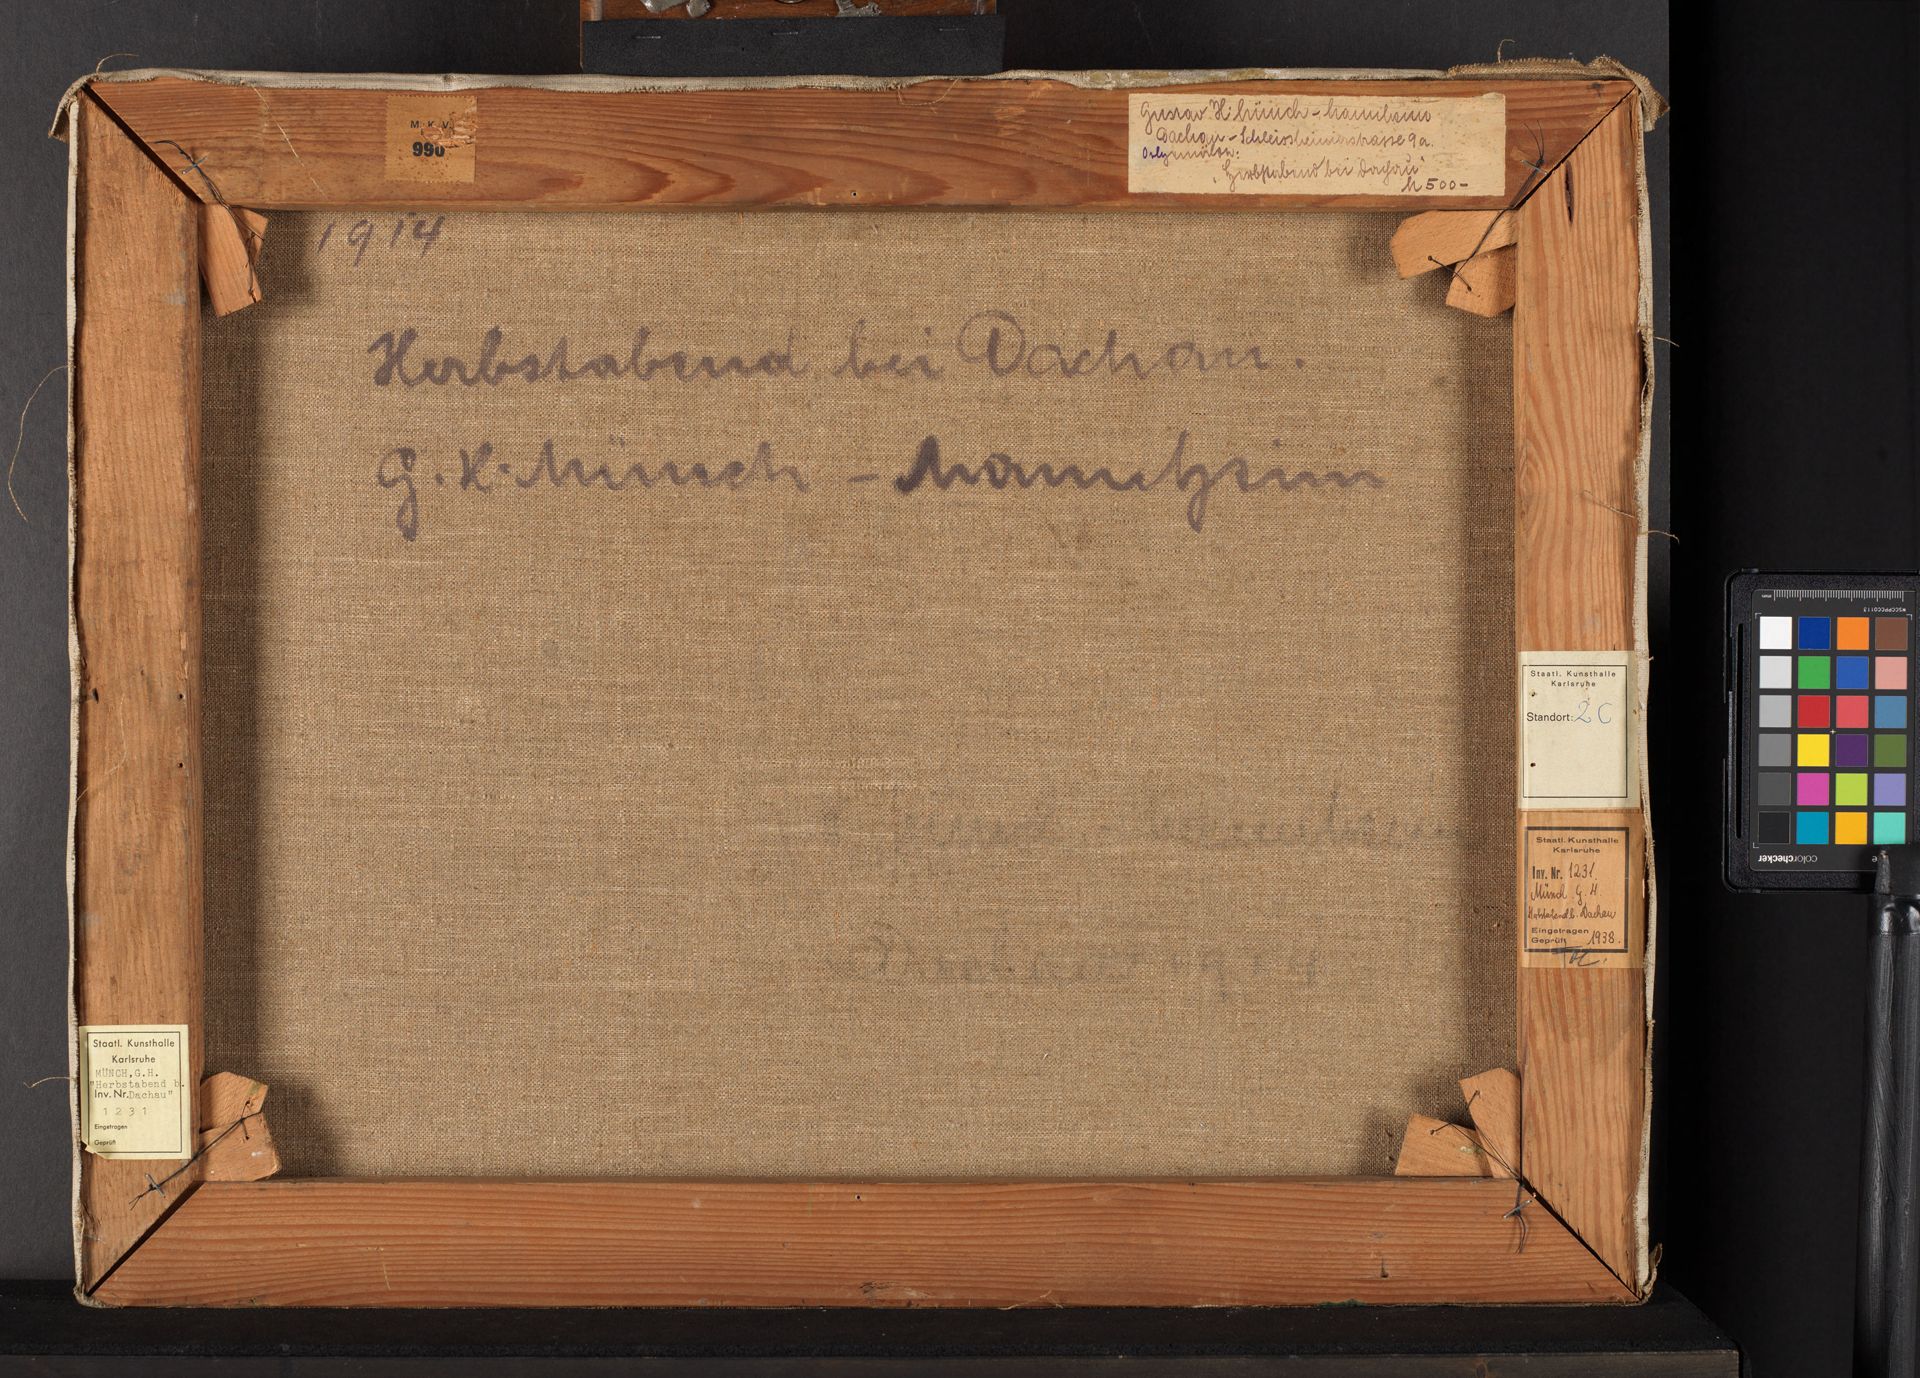 M. K. V.
990
Gustav H. Münch-Mannheim
Dachau-Schleissheimerstrasse 9a.
"Herbstabend bei Dachau"
M 500-
1914
Herbstabend bei Dachau.
G. H. Münch - Mannheim
MSCCPPCC0113
colorchecker
Staatl. Kunsthalle
Karlsruhe
Standort: 2 C
Staatl. Kunsthalle
Karlsruhe
Inv. Nr. 1231
Münch G. H.
Herbstabend b. Dachau
Eingetragen
Geprüft 1938.
Staatl. Kunsthalle
Karlsruhe
MÜNCH, G.H.
"Herbstabend b.
Inv. Nr. Dachau"
1231
Eingetragen
Geprüft